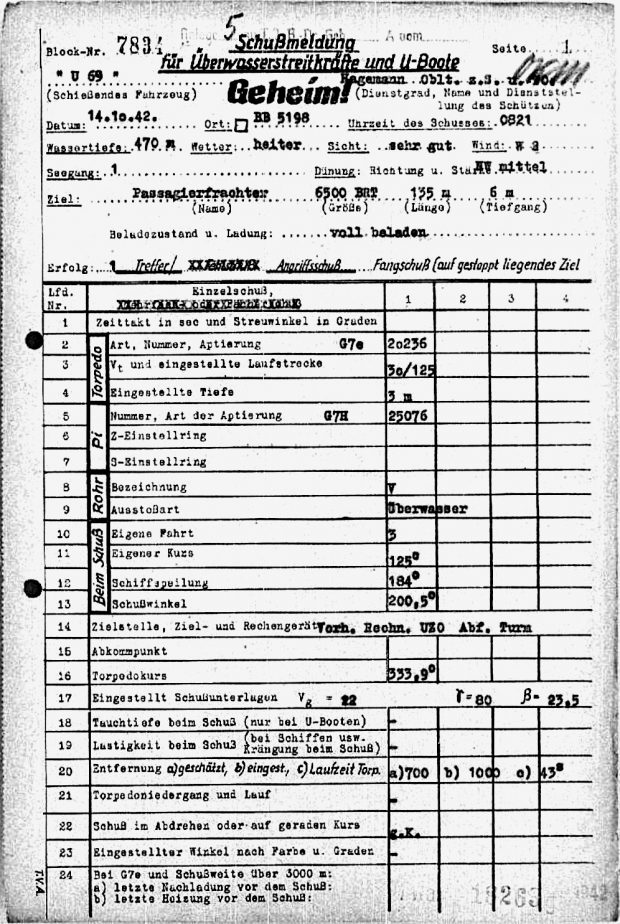 5
Block-Nr. 7834 Schußmeldung Seite 1.
für Überwasserstreitkräfte und U-Boote
" U 69 " Hagemann Oblt. z.S.
(Schießendes Fahrzeug) Geheim! (Dienstgrad, Name und Dienststel-
lung des Schützen)
Datum: 14.1o.42. Ort: BB 5198 Uhrzeit des Schusses: 0821
Wassertiefe: 470 m Wetter: heiter Sicht: sehr gut. Wind: W 3
Seegang: 1 Dünung: Richtung u. Stärke NW mittel
Ziel: Passagierfrachter 6500 BRT 135 m 6 m
(Name) (Größe) (Länge) (Tiefgang)
Beladezustand u. Ladung: voll beladen
Erfolg: 1 Treffer/ Angriffsschuß Fangschuß (auf gestoppt liegendes Ziel
Lfd. Nr. Einzelschuß, 1 2 3 4
1 Zeittakt in sec und Streuwinkel in Graden
Torpedo
2 Art, Nummer, Aptierung G7e 2o236
3 Vt und eingestellte Laufstrecke 3o/125
4 Eingestellte Tiefe 3 m
Pi
5 Nummer, Art der Aptierung G7H 25076
6 Z-Einstellring
7 S-Einstellring
Rohr
8 Bezeichnung V
9 Ausstoßart Überwasser
Beim Schuß
10 Eigene Fahrt 3
11 Eigener Kurs 125°
12 Schiffspeilung 184°
13 Schußwinkel 200,5°
14 Zielstelle, Ziel- und Rechengerät Vorh. Rechn. UZO Abf. Turm
15 Abkommpunkt
16 Torpedokurs 333,9°
17 Eingestellt Schußunterlagen Vg = 22 γ=80 β= 23,5
18 Tauchtiefe beim Schuß (nur bei U-Booten) -
19 Lastigkeit beim Schuß (bei Schiffen usw. Krängung beim Schuß) -
20 Entfernung a) geschätzt, b) eingest., c) Laufzeit Torp. a)700 b) 1000 c) 43s
21 Torpedoniedergang und Lauf -
22 Schuß im Abdrehen oder auf geraden Kurs g.K.
23 Eingestellter Winkel nach Farbe u. Graden -
24 Bei G7e und Schußweite über 3000 m:
a) letzte Nachladung vor dem Schuß:
b) letzte Heizung vor dem Schuß:
TVA